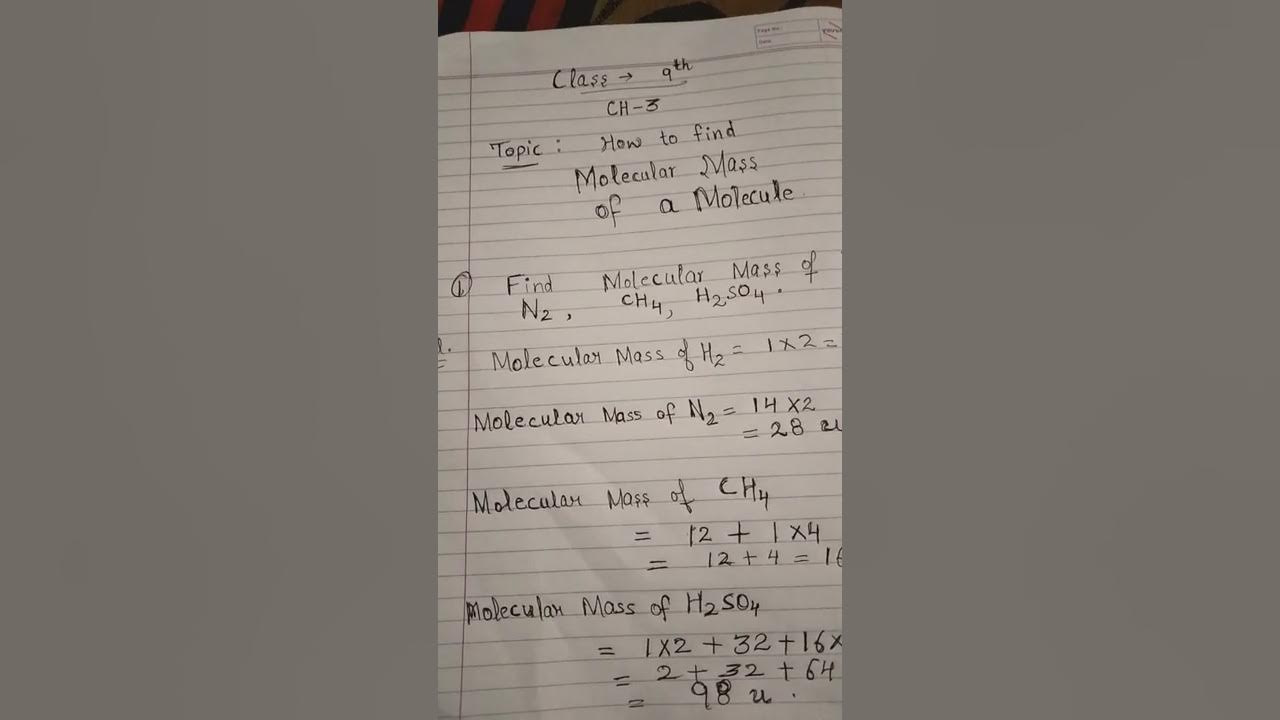 Page No.:
Date:
Class → 9th
CH-3
Topic : How to find
Molecular Mass
of a Molecule.
① Find Molecular Mass of
N2, CH4, H2SO4.
Molecular Mass of H2 = 1 × 2 =
Molecular Mass of N2 = 14 × 2
= 28 u
Molecular Mass of CH4
= 12 + 1 × 4
= 12 + 4 = 16
Molecular Mass of H2SO4
= 1×2 + 32 + 16×
= 2 + 32 + 64
= 98 u.